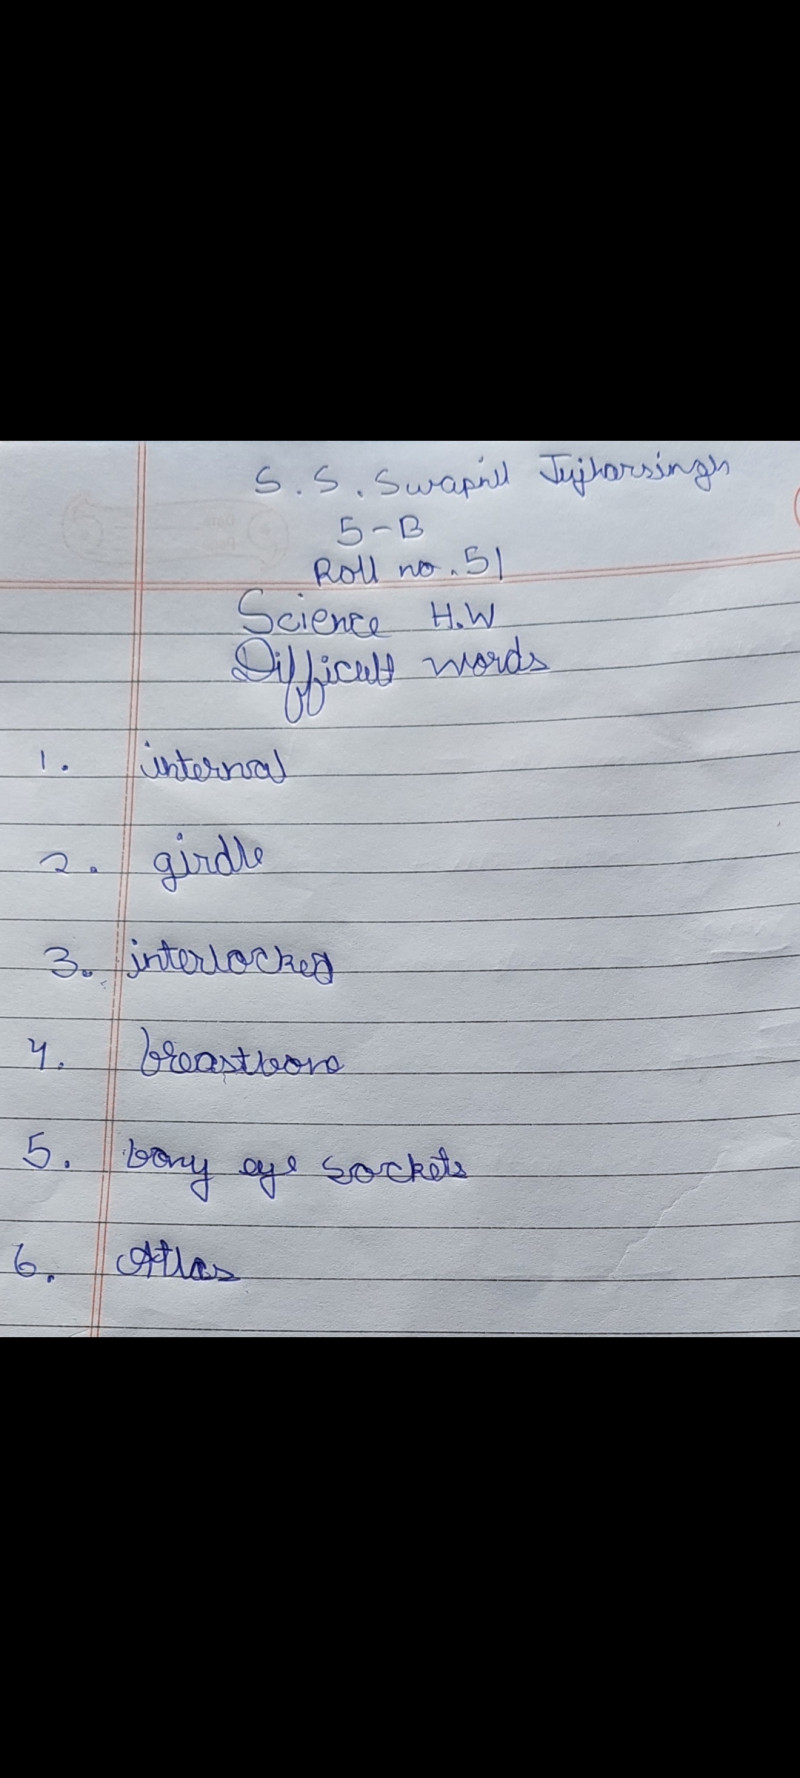 S. S. Swapnil Jujharsingh
5-B
Roll no. 51
Science H.W
Difficult words
1. internal
2. girdle
3. interlocked
4. breastbone
5. bony eye sockets
6. Atlas